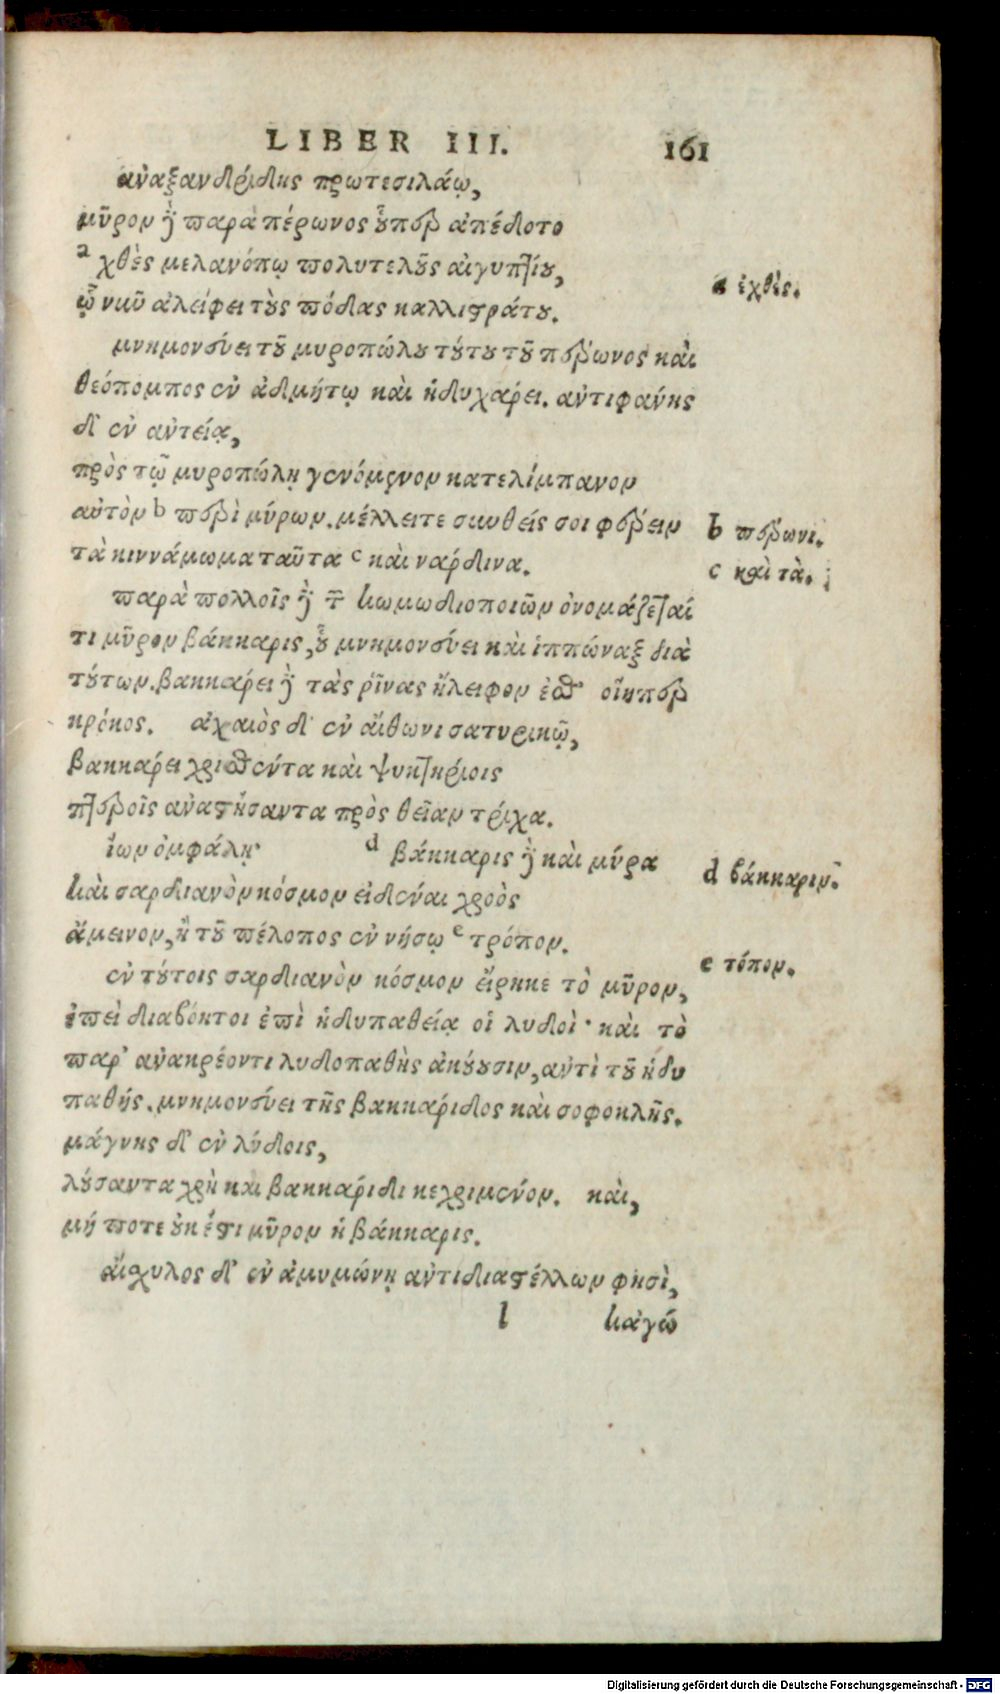 LIBER III. 161
ἀναξανδρίδης πρωτεσιλάῳ,
μῦρον ἢ παρὰ πέρωνος οὗπερ ἀπέδοτο
a χθὲς μελανόπῳ πολυτελοῦς αἰγυπτίου,
a ἐχθὲς.
ᾧ νῦν ἀλείφει τοὺς πόδας καλλιστράτου.
μνημονεύει τοῦ μυροπώλου τούτου τοῦ πέρωνος καὶ
θεόπομπος ἐν ἀδμήτῳ καὶ ἡδυχάρει. ἀντιφάνης
δ' ἐν ἀντείᾳ,
πρὸς τῷ μυροπώλῃ γενόμενον κατελίμπανον
αὐτὸν b περὶ μύρων. μέλλει τε συνθείς σοι φέρειν
b πέρωνι.
τὰ κιννάμωμα ταῦτα c καὶ νάρδινα.
c καὶ τὰ.
παρὰ πολλοῖς δὲ τῶν κωμωδιοποιῶν ὀνομάζεταί
τι μῦρον βάκκαρις, οὗ μνημονεύει καὶ ἱππώναξ διὰ
τούτων. βακκάρει δὲ τὰς ῥῖνας ἤλειφον ἐσθ' οἵηπερ
κρόκος. ἀχαιὸς δ' ἐν αἴθωνι σατυρικῷ,
βακκάρει χρισθέντα καὶ ψυκτηρίοις
πτεροῖς ἀναστήσαντα πρὸς θεῖαν τρίχα.
ἴων ὀμφάλῃ· d βάκκαρις δὲ καὶ μύρα
d βάκκαριν.
καὶ σαρδιανὸν κόσμον εἰδέναι χροὸς
ἄμεινον, ἢ τοῦ πέλοπος ἐν νήσῳ e τρόπον.
e τόπον.
ἐν τούτοις σαρδιανὸν κόσμον εἴρηκε τὸ μῦρον,
ἐπεὶ διαβόητοι ἐπὶ ἡδυπαθείᾳ οἱ λυδοὶ· καὶ τὸ
παρ' ἀνακρέοντι λυδοπαθὴς ἀκούουσιν, ἀντὶ τοῦ ἡδυ
παθής. μνημονεύει τῆς βακκάριδος καὶ σοφοκλῆς.
μάγνης δ' ἐν λύδοις,
λούσαντα χρὴ καὶ βακκάριδι κεχριμένον. καὶ,
μή ποτε οὐκ ἔστι μῦρον ἡ βάκκαρις.
αἴσχυλος δ' ἐν ἀμυμώνῃ ἀντιδιαστέλλων φησὶ,
l κἀγώ
Digitalisierung gefördert durch die Deutsche Forschungsgemeinschaft - DFG